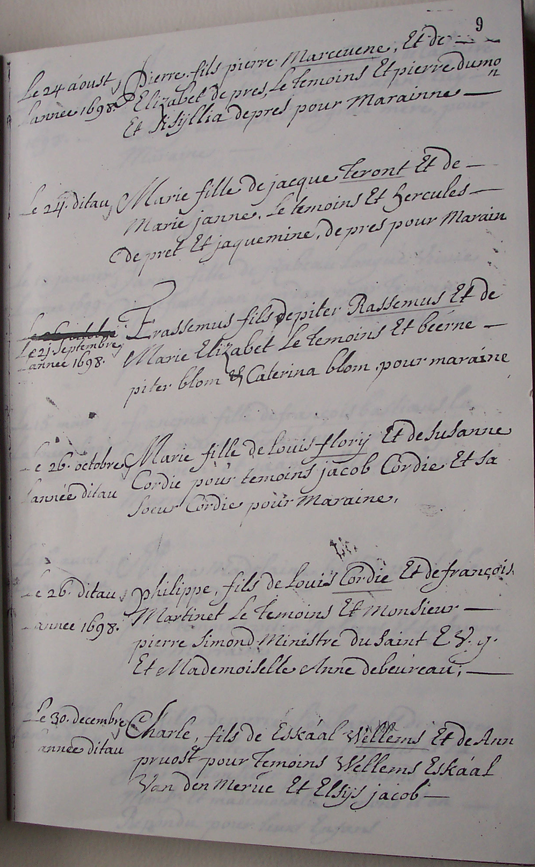 9
Le 24 aoust Pierre, fils pierre Marcevene, Et de
l'année 1698. Elizabet de pres, Le temoins Et pierre dumon
Et Asyllia depres pour Marainne
Le 24. ditau Marie fille de jacque Teront Et de
Marie janne, Le temoins Et hercules
de pret Et jaquemine, de pres pour Marain
Le 21. Septembre Erassemus fils de piter Rassemus Et de
l'année 1698. Marie Elizabet Le temoins Et beerne
piter blom & Caterina blom, pour maraine
Le 26. octobre Marie fille de Louis flory Et de Susanne
l'année ditau Cordie pour temoins jacob Cordie Et sa
soeur Cordie pour Maraine,
Le 26. ditau philippe, fils de Louis Cordie Et de françois
l'année 1698. Martinet Le temoins Et Monsieur
pierre Simond Ministre du Saint E. V. g.
Et Mademoiselle Anne debeureau,
Le 30. decembre Charle, fils de Eskáal Wellems Et de Ann
l'année ditau pruost pour temoins Wellems Eskáal
Van den Merue Et Elsijs jacob